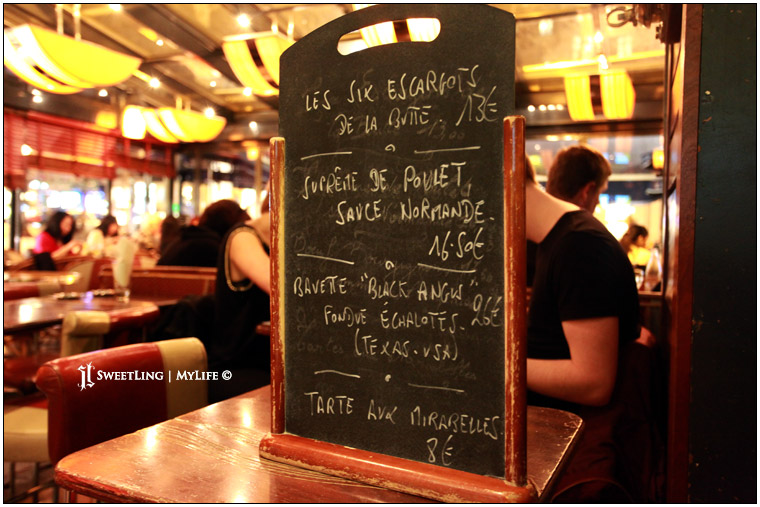 LES SIX ESCARGOTS
DE LA BUTTE. 13€
SUPRÊME DE POULET
SAUCE NORMANDE.
16.50€
BAVETTE "BLACK ANGUS" 26€
FONDUE ÉCHALOTES.
(TEXAS. USA)
TARTE AUX MIRABELLES.
8€
SWEETLING | MYLIFE ©